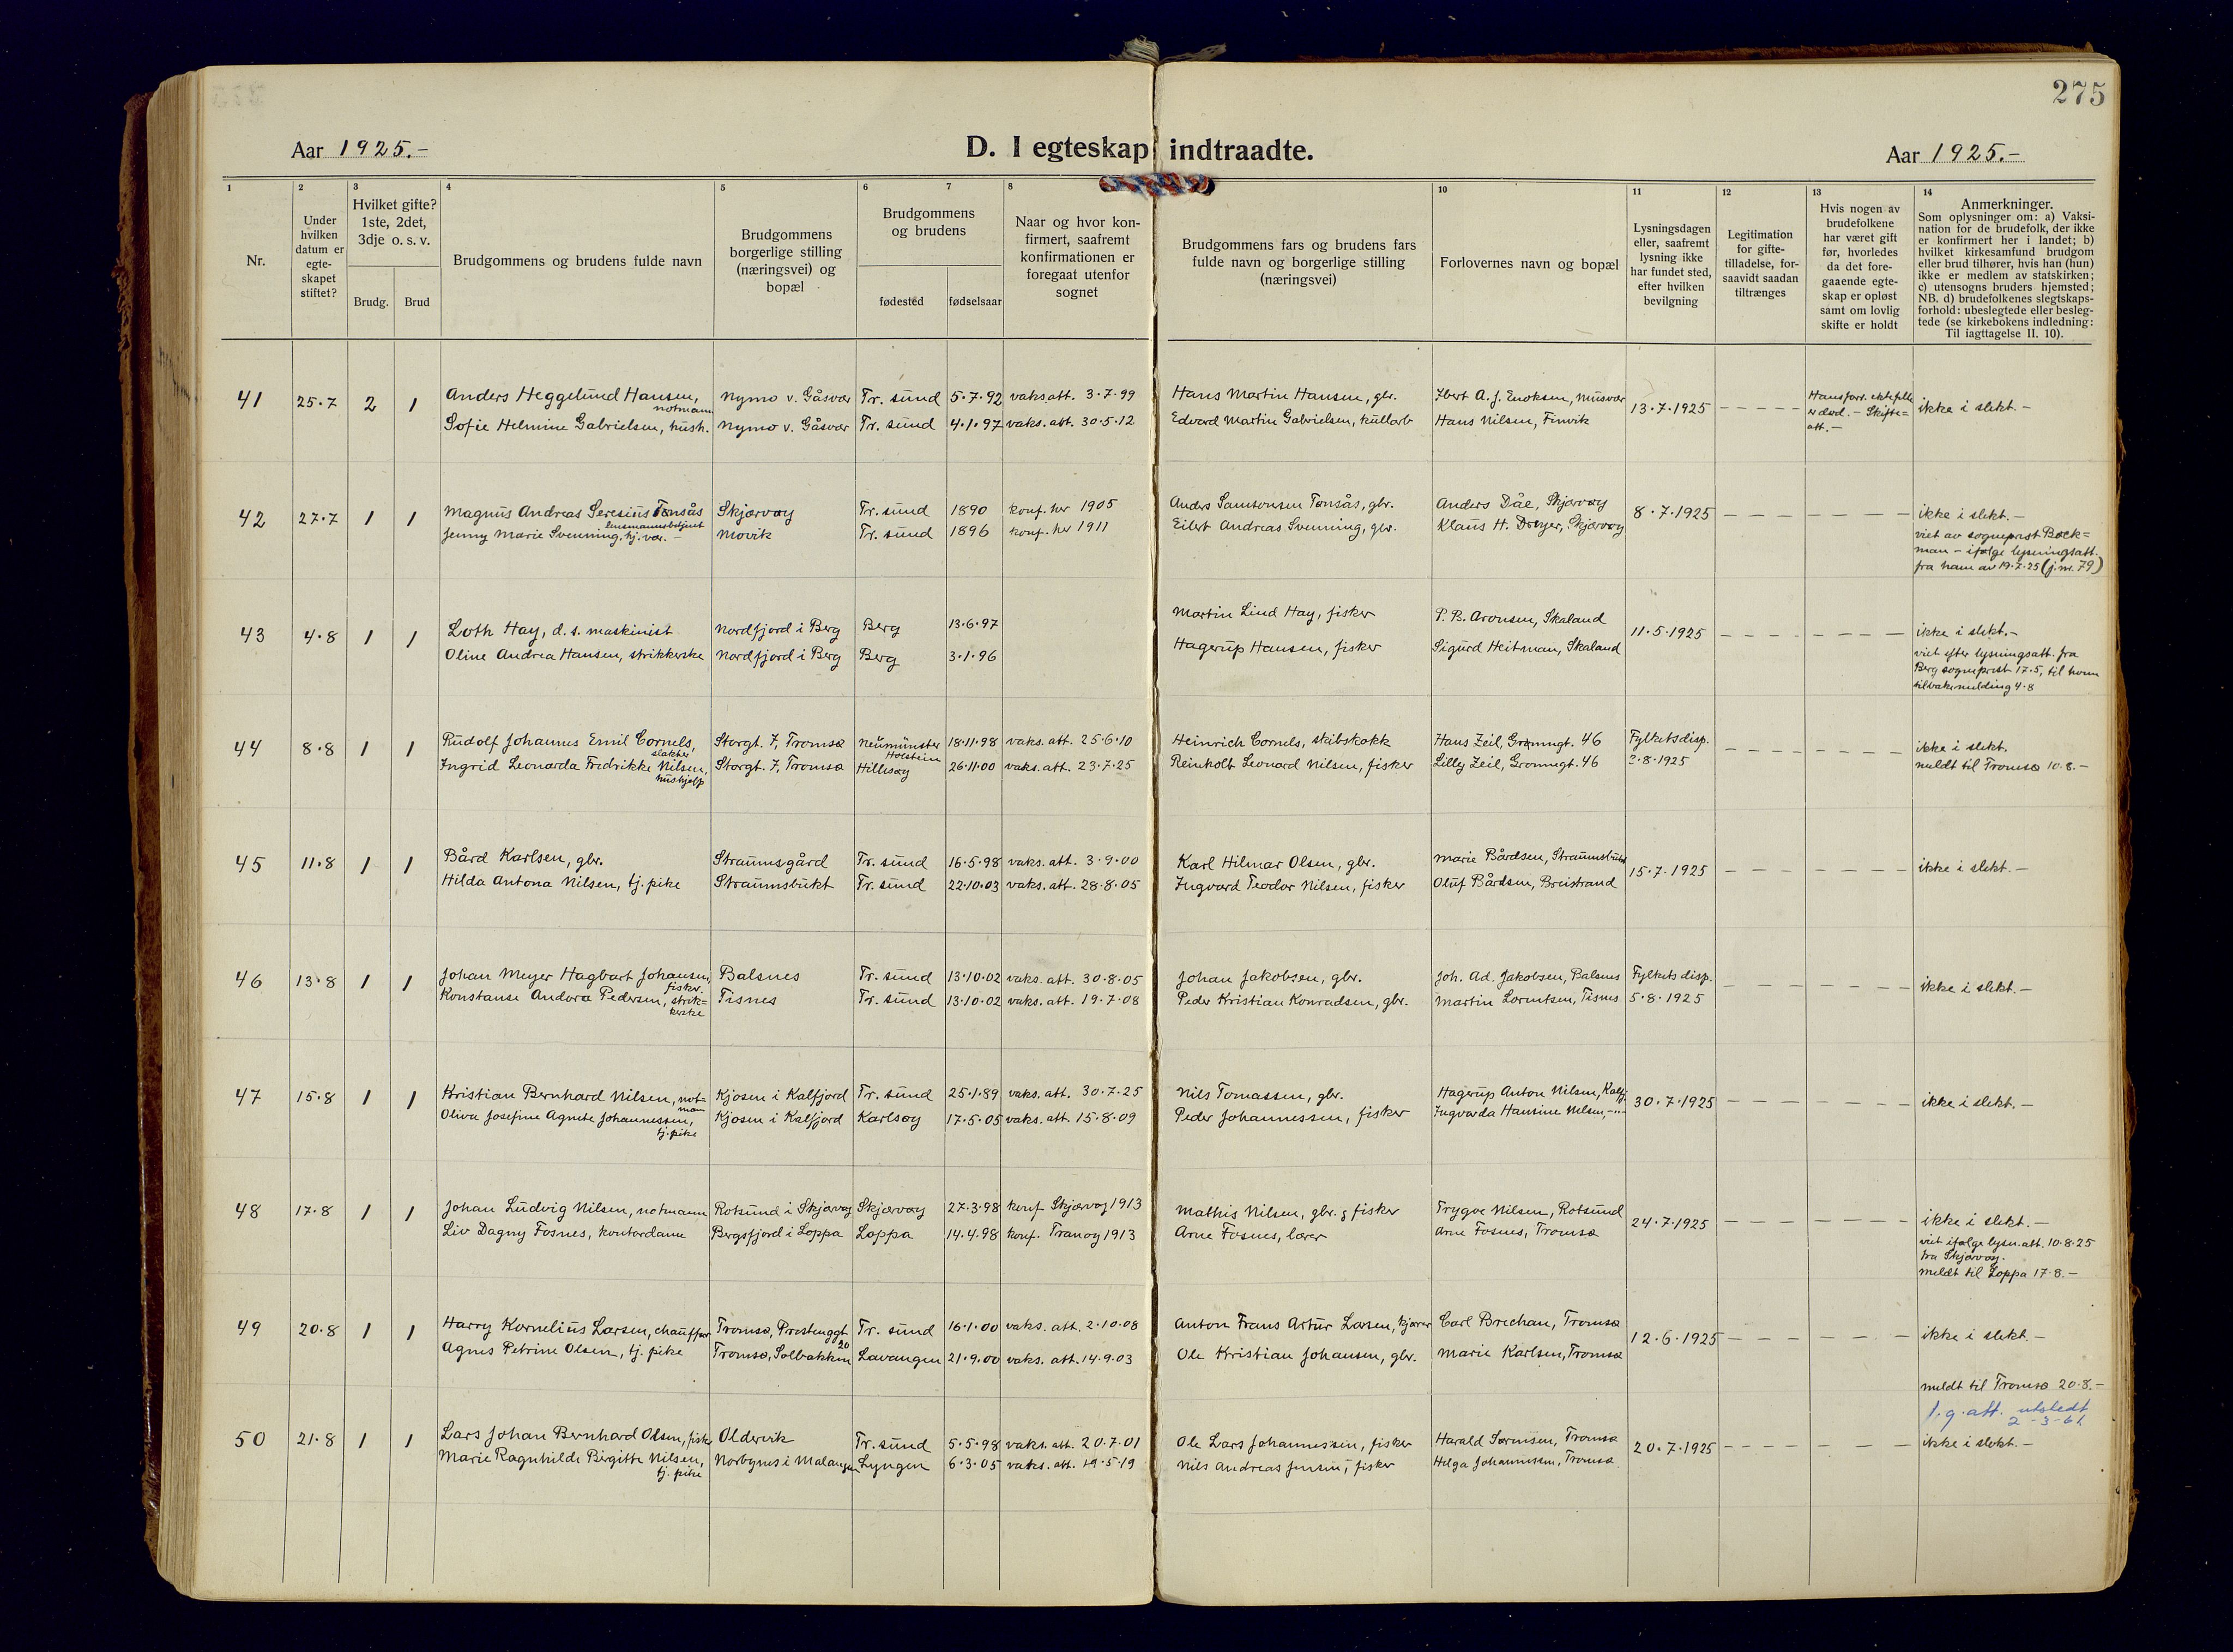 275
Aar 1925.-
D. I egteskap indtraadte.
Aar 1925.-
1 2 3 4 5 6 7 8 10 11 12 13 14
Nr.
Under
hvilken
datum er
egte-
skapet
stiftet?
Hvilket gifte?
1ste, 2det,
3dje o. s. v.
Brudg. Brud
Brudgommens og brudens fulde navn
Brudgommens
borgerlige stilling
(næringsvei) og
bopæl
Brudgommens
og brudens
fødested fødselsaar
Naar og hvor kon-
firmert, saafremt
konfirmationen er
foregaat utenfor
sognet
Brudgommens fars og brudens fars
fulde navn og borgerlige stilling
(næringsvei)
Forlovernes navn og bopæl
Lysningsdagen
eller, saafremt
lysning ikke
har fundet sted,
efter hvilken
bevilgning
Legitimation
for gifte-
tilladelse, for-
saavidt saadan
tiltrænges
Hvis nogen av
brudefolkene
har været gift
før, hvorledes
da det fore-
gaaende egte-
skap er opløst
samt om lovlig
skifte er holdt
Anmerkninger.
Som oplysninger om: a) Vaksi-
nation for de brudefolk, der ikke
er konfirmert her i landet; b)
hvilket kirkesamfund brudgom
eller brud tilhører, hvis han (hun)
ikke er medlem av statskirken;
c) utensogns bruders hjemsted;
NB. d) brudefolkenes slegtskaps-
forhold: ubeslegtede eller besleg-
tede (se kirkebokens indledning:
Til iagttagelse II. 10).
41 25.7 2 1
Anders Heggelund Hansen, notmann Nymo v. Gåsvær Tr. sund 5.7.92 vaks.att. 3.7.99 Hans Martin Hansen, gbr. A. J. Enoksen, Musvær
Sofie Helmine Gabrielsen, hush. Nymo v. Gåsvær Tr. sund 4.1.97 vaks. att. 30.5.12 Edvard Martin Gabrielsen, kullarb Hans Nilsen, Finvik
13.7.1925 - - - - -
Hans forr. ektefelle
er død. - Skifte=
att. -
ikke i slekt. -
42 27.7 1 1
Magnus Andreas Seresius Tønsås lensmannsbetjent Skjærvøy Tr. sund 1890 konf. her 1905 Anders Samsonsen Tønsås, gbr. Anders Dåe, Skjærvøy
Jenny Marie Svenning, hj. vær. - Movik Tr. sund 1896 konf. her 1911 Eilert Andreas Svenning, gbr. Klaus H. Dreyer, Skjærvøy
8.7.1925 - - - - - - - - -
ikke i slekt. -
viet av sogneprest Bøck=
man - ifølge lysningsatt.
fra ham av 19.7.25 (j. nr. 79)
43 4.8 1 1
Loth Hay, d. s. maskinist Nordfjord i Berg Berg 13.6.97 Martin Lind Hay, fisker P. B. Aronsen, Skaland
Oline Andrea Hansen, strikkerske Nordfjord i Berg Berg 3.1.96 Hagerup Hansen, fisker Sigurd Heitman, Skaland
11.5.1925 - - - - - - - - -
ikke i slekt. -
viet efter lysningsatt. fra
Berg sogneprest 17.5, til ham
tilbakemelding 4.8
44 8.8 1 1
Rudolf Johannes Emil Cornels, slakter Storgt. 7, Tromsø Neumünster Holstein 18.11.98 vaks. att. 25.6.10 Heinrich Cornels, skibskokk Hans Zeil, Grønnegt. 46
Ingrid Leonarda Fredrikke Nilsen, hushjelp Storgt. 7, Tromsø Hillesøy 26.11.00 vaks. att. 23.7.25 Reinholt Leonard Nilsen, fisker Lilly Zeil, Grønnegt. 46
Fylketsdisp.
?.8.1925
- - - - - - - - -
ikke i slekt.
meldt til Tromsø 10.8. -
45 11.8 1 1
Bård Karlsen, gbr. Straumsgård Tr. sund 16.5.98 vaks. att. 3.9.00 Karl Hilmar Olsen, gbr. Marie Bårdsen, Straumsbukt
Hilda Antona Nilsen, tj. pike Straumsbukt Tr. sund 22.10.03 vaks. att. 28.8.05 Ingvard Teodor Nilsen, fisker Oluf Bårdsen, Breistrand
15.7.1925 - - - - - - - - -
ikke i slekt. -
46 13.8 1 1
Johan Meyer Hagbart Johansen, fisker. Balsnes Tr. sund 13.10.02 vaks. att. 30.8.05 Johan Jakobsen, gbr. Joh. Ad. Jakobsen, Balsnes
Konstanse Andora Pedersen, strik=kerske Tisnes Tr. sund 13.10.02 vaks. att. 19.7.08 Peder Kristian Konradsen, gbr. Martin Lorentsen, Tisnes
Fylkets disp.
5.8.1925
- - - - - - - - -
ikke i slekt. -
47 15.8 1 1
Kristian Bernhard Nilsen, not=mann Kjosen i Kalfjord Tr. sund 25.1.89 vaks. att. 30.7.25 Nils Tomassen, gbr. Hagerup Anton Nilsen, Kalfj.
Oliva Josefine Agnete Johannessen, tj. pike Kjosen i Kalfjord Karlsøy 17.5.05 vaks. att. 15.8.09 Peder Johannessen, fisker Ingvarda Hansine Nilsen, -"-
30.7.1925 - - - - - - - - -
ikke i slekt. -
48 17.8 1 1
Johan Ludvig Nilsen, notmann Rotsund i Skjærvøy Skjærvøy 27.3.98 konf Skjærvøy 1913 Mathis Nilsen, gbr. g fisker Trygve Nilsen, Rotsund
Liv Dagny Fosnes, kontordame Bergsfjord i Loppa Loppa 14.4.98 konf. Tranøy 1913 Arne Fosnes, lærer Arne Fosnes, Tromsø
24.7.1925 - - - - - - - - -
ikke i slekt. -
viet ifølge lysn. att. 10.8.25
fra Skjærvøy.
meldt til Loppa 17.8. -
49 20.8 1 1
Harry Kornelius Larsen, chauffør Tromsø, Prestenggt 20 Tr. sund 16.1.00 vaks. att. 2.10.08 Anton Frans Artur Larsen, kjører Carl Brechan, Tromsø
Agnes Petrine Olsen, tj. pike Tromsø, Solbakken Lavangen 21.9.00 vaks. att. 14.9.03 Ole Kristian Johansen, gbr. Marie Karlsen, Tromsø
12.6.1925 - - - - - - - - -
ikke i slekt. -
meldt til Tromsø 20.8. -
50 21.8 1 1
Lars Johan Bernhard Olsen, fisker Oldervik Tr. sund 5.5.98 vaks. att. 20.7.01 Ole Lars Johannessen, fisker Harald Sørensen, Tromsø
Marie Ragnhilde Bergitte Nilsen, tj. pike Norbynes i Malangen Lyngen 6.3.05 vaks. att. 19.5.19 Nils Andreas Jensen, fisker Helga Johannessen, Tromsø
20.7.1925 - - - - - - - -
f. g. att. utstedt
2-3-61
ikke i slekt. -